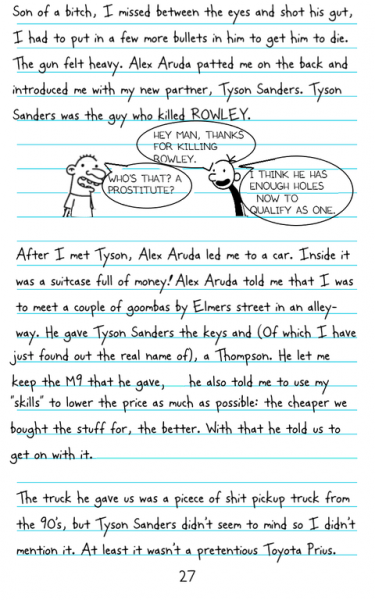 Son of a bitch, I missed between the eyes and shot his gut,
I had to put in a few more bullets in him to get him to die.
The gun felt heavy. Alex Aruda patted me on the back and
introduced me with my new partner, Tyson Sanders. Tyson
Sanders was the guy who killed ROWLEY.
HEY MAN, THANKS
FOR KILLING
ROWLEY.
WHO'S THAT? A
PROSTITUTE?
I THINK HE HAS
ENOUGH HOLES
NOW TO
QUALIFY AS ONE.
After I met Tyson, Alex Aruda led me to a car. Inside it
was a suitcase full of money! Alex Aruda told me that I was
to meet a couple of goombas by Elmers street in an alley-
way. He gave Tyson Sanders the keys and (Of which I have
just found out the real name of), a Thompson. He let me
keep the M9 that he gave, he also told me to use my
"skills" to lower the price as much as possible: the cheaper we
bought the stuff for, the better. With that he told us to
get on with it.
The truck he gave us was a picece of shit pickup truck from
the 90's, but Tyson Sanders didn't seem to mind so I didn't
mention it. At least it wasn't a pretentious Toyota Prius.
27